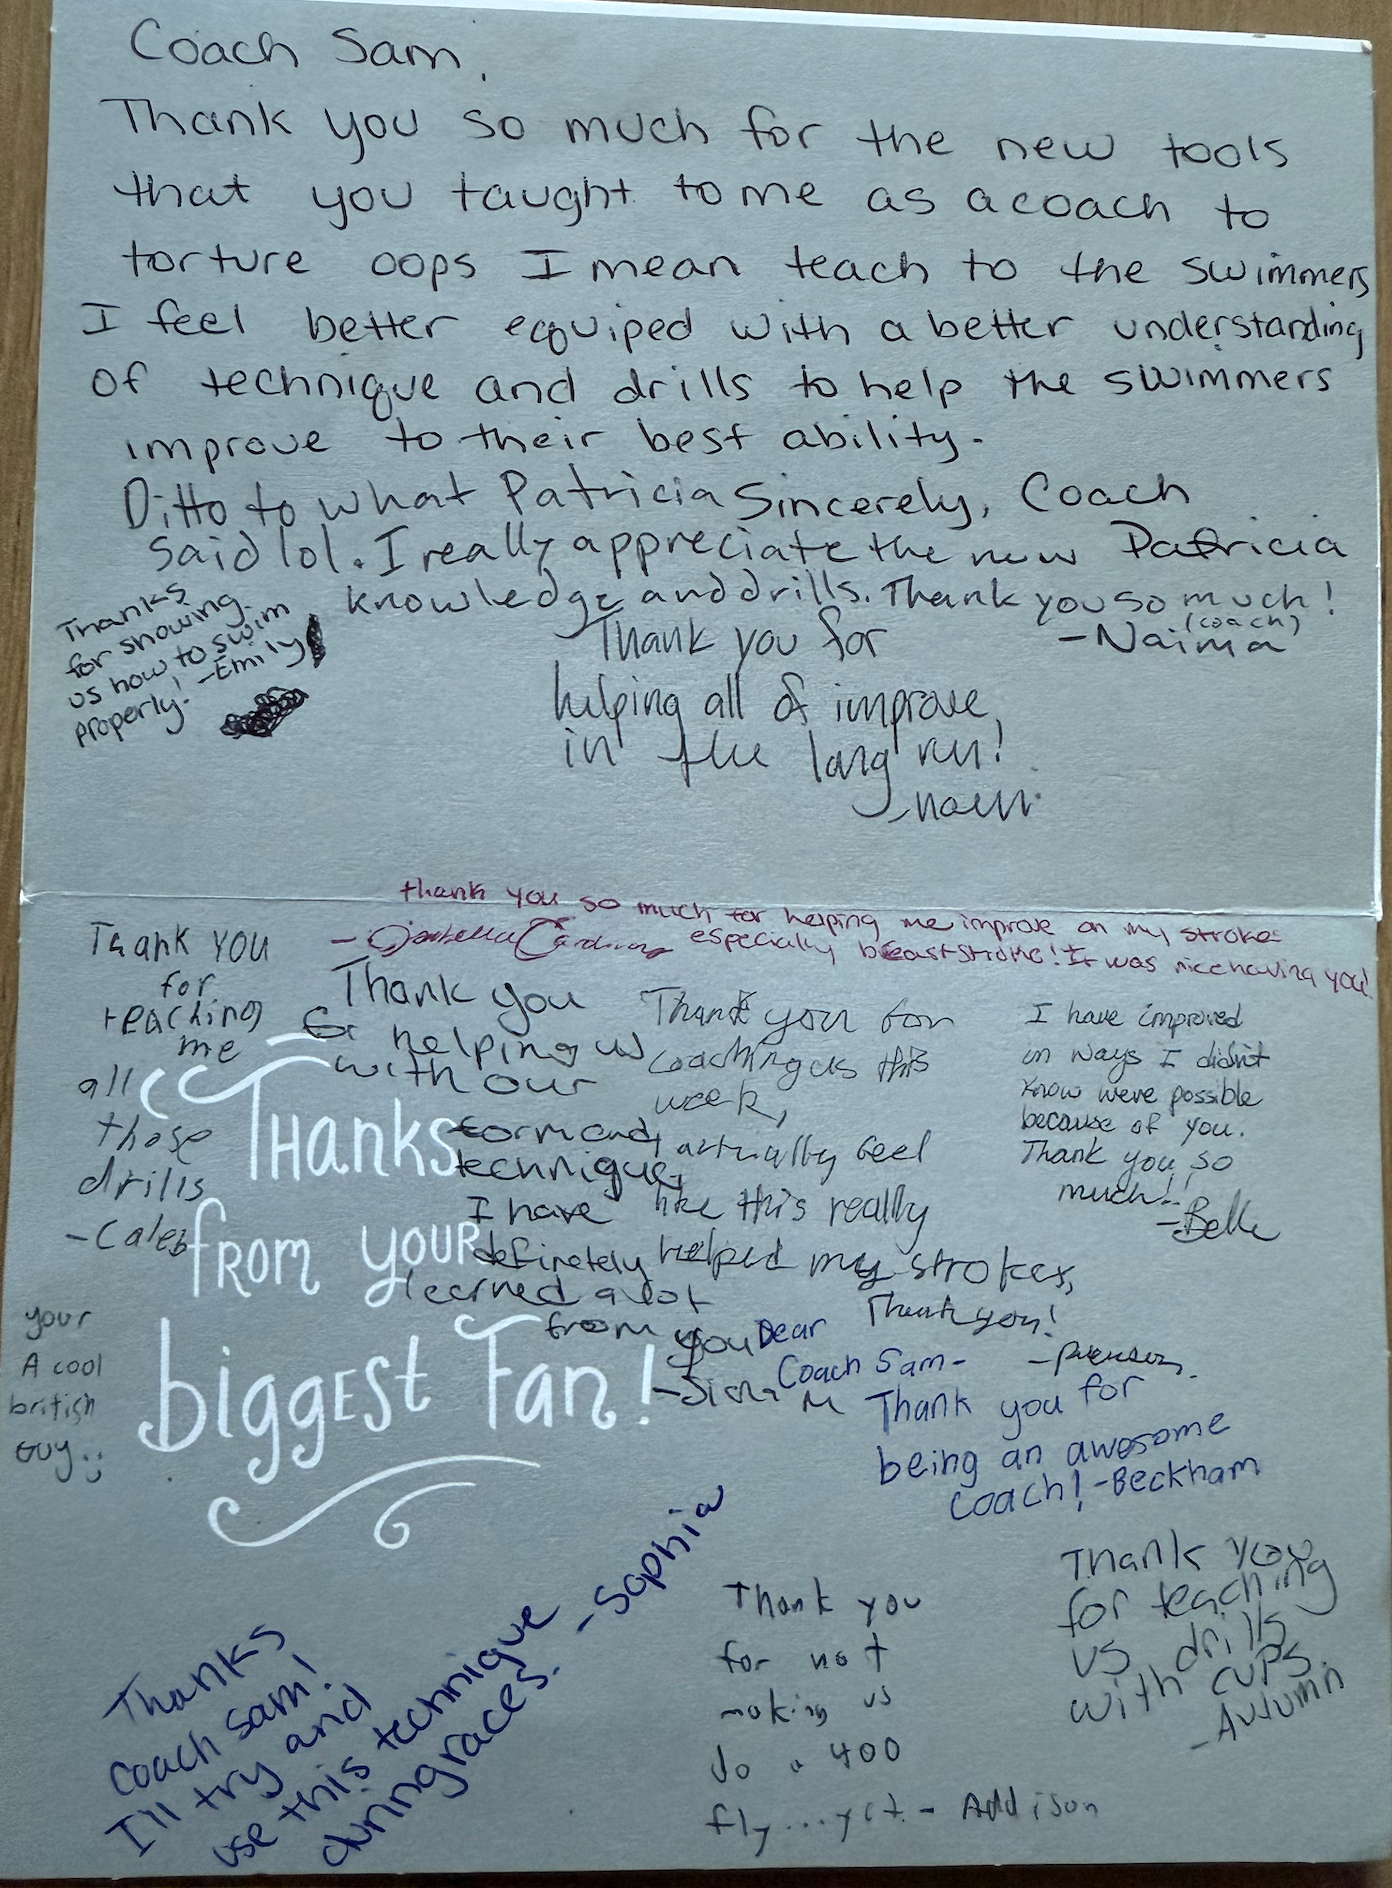 Coach Sam,
Thank you so much for the new tools
that you taught to me as a coach to
torture oops I mean teach to the swimmers
I feel better equiped with a better understanding
of technique and drills to help the swimmers
improve to their best ability.
Sincerely, Coach
Patricia
Ditto to what Patricia
said lol. I really appreciate the new
knowledge and drills. Thank you so much!
-Naima (coach)
Thanks
for showing
us how to swim
properly! -Emily
Thank you for
helping all of improve
in the long run!
thank you so much for helping me improve on my stroke
especially breaststroke! It was nice having you!
Thank you
for
teaching
me
all
those
drills
-Caleb
Thank you
for helping us
with our
form and
technique,
I have
definetely
learned a lot
from you
Thank you for
coaching us this
week,
I actually feel
like this really
helped my strokes,
Thank you!
I have improved
in ways I didn't
know were possible
because of you.
Thank you so
much!!
-Belle
THanks
fROm youR
biggESt Fan!
your
A cool
british
Guy :)
Dear
Coach Sam-
Thank you for
being an awesome
coach! -Beckham
Thanks
coach Sam!
I'll try and
use this technique
during races. -Sophia
Thank you
for not
making us
do a 400
fly...yet - Addison
Thank you
for teaching
us drills
with cups.
-Autumn